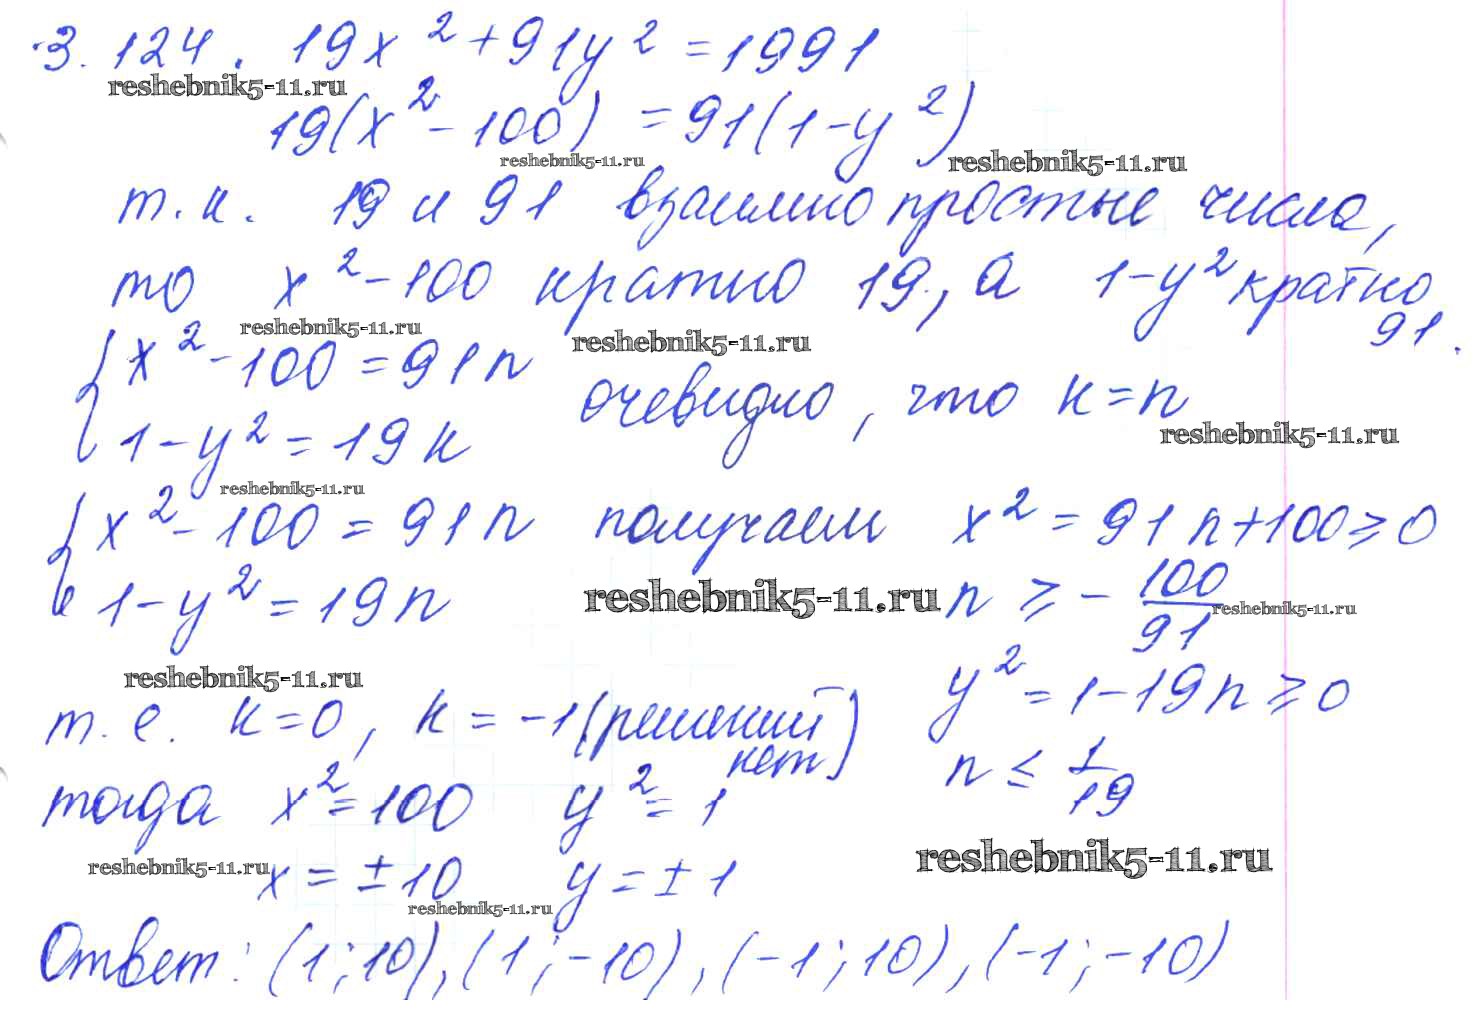 3.124. 19x² + 91y² = 1991
reshebnik5-11.ru
19(x² - 100) = 91(1 - y²)
reshebnik5-11.ru reshebnik5-11.ru
т.к. 19 и 91 взаимно простые числа,
то x² - 100 кратно 19, а 1 - y² кратно
91.
reshebnik5-11.ru reshebnik5-11.ru
{ x² - 100 = 91n
1 - y² = 19k очевидно, что k = n
reshebnik5-11.ru
reshebnik5-11.ru
{ x² - 100 = 91n получаем x² = 91n + 100 ≥ 0
1 - y² = 19n reshebnik5-11.ru n ≥ - 100/91 reshebnik5-11.ru
reshebnik5-11.ru
y² = 1 - 19n ≥ 0
т.е. k = 0, k = -1 (решений нет)
n ≤ 1/19
тогда x² = 100 y² = 1
reshebnik5-11.ru reshebnik5-11.ru
x = ± 10 y = ± 1
reshebnik5-11.ru
Ответ: (1; 10), (1; -10), (-1; 10), (-1; -10)